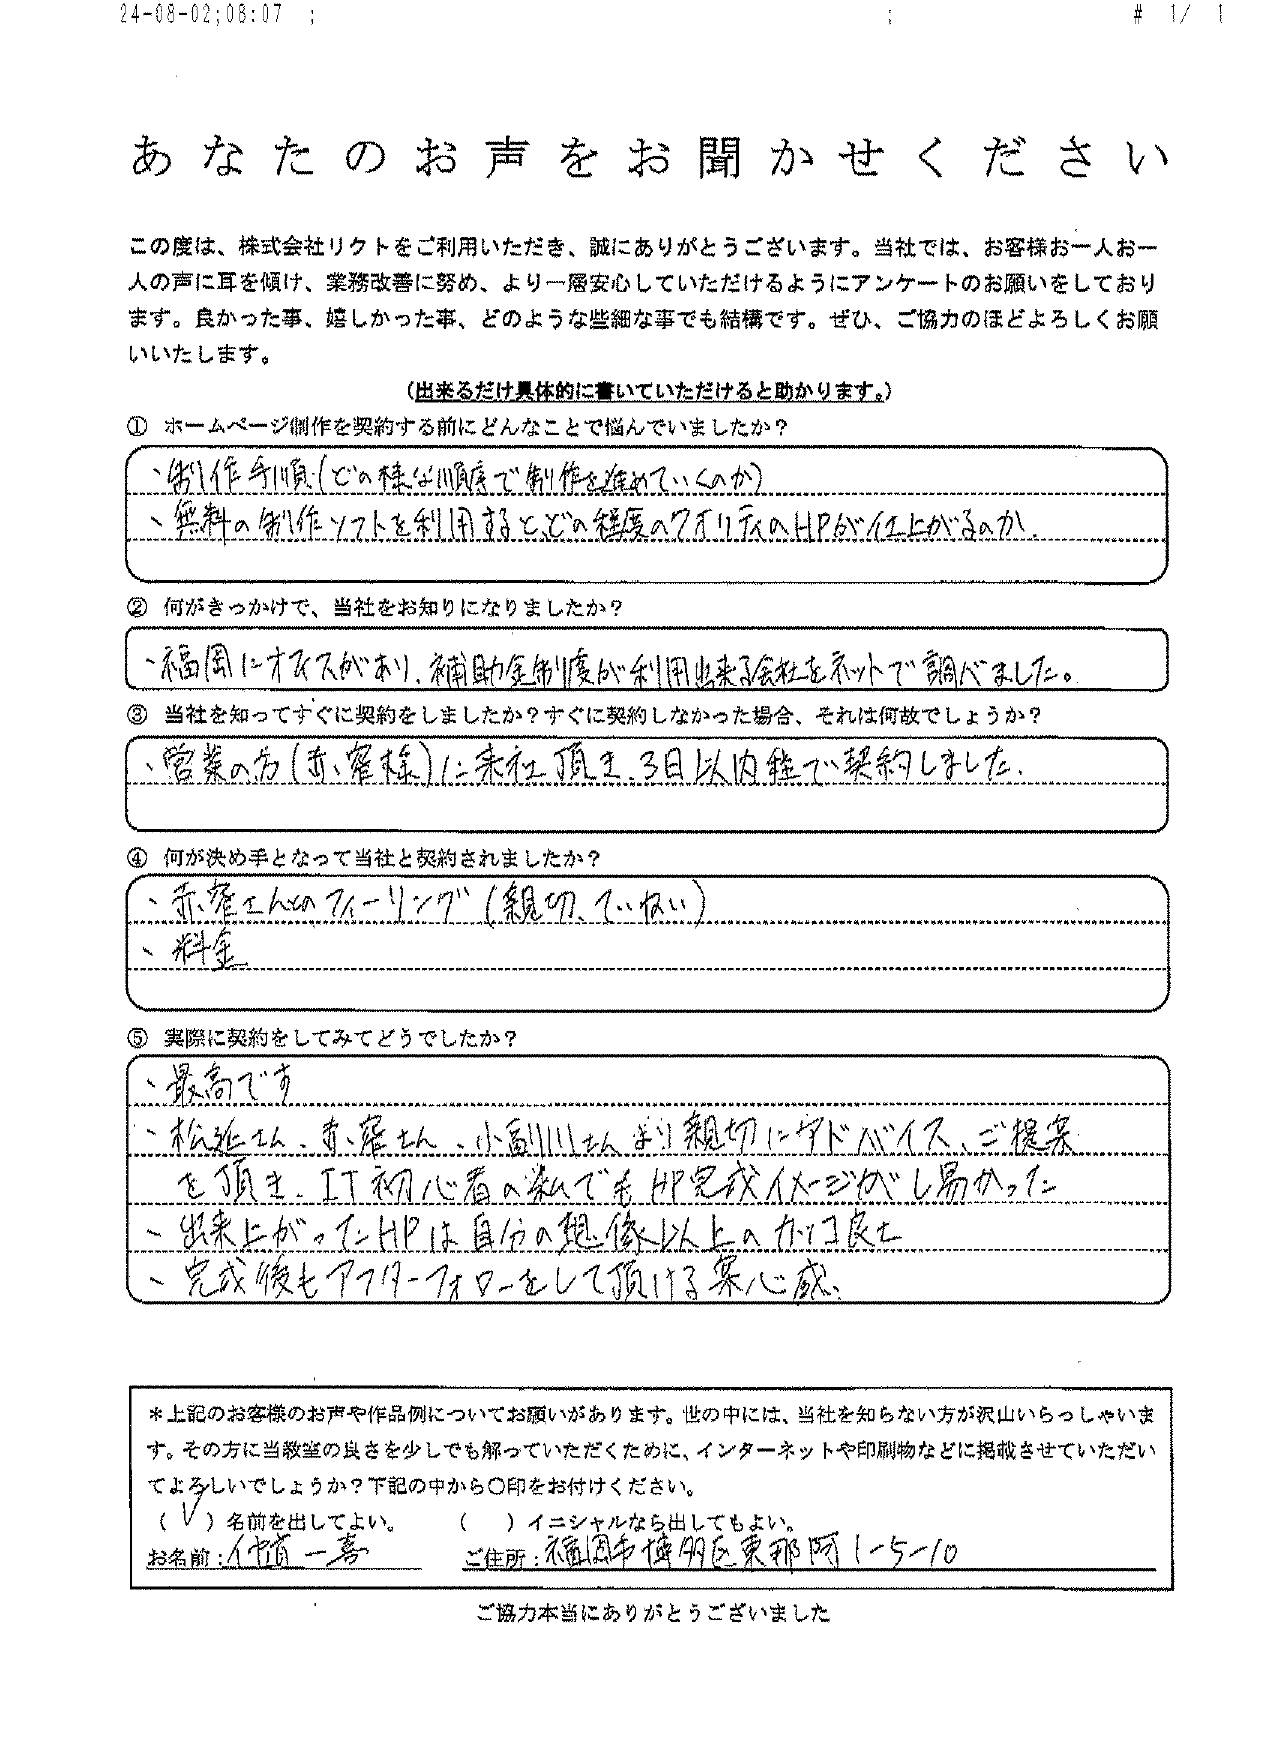 24-08-02;08:07 ; ; # 1/ 1
あなたのお声をお聞かせください
この度は、株式会社リクトをご利用いただき、誠にありがとうございます。当社では、お客様お一人お一
人の声に耳を傾け、業務改善に努め、より一層安心していただけるようにアンケートのお願いをしており
ます。良かった事、嬉しかった事、どのような些細な事でも結構です。ぜひ、ご協力のほどよろしくお願
いいたします。
（出来るだけ具体的に書いていただけると助かります。）
① ホームページ制作を契約する前にどんなことで悩んでいましたか？
、制作手順（どの様な順序で制作を進めていくのか）
、無料の制作ソフトを利用すると、どの程度のクオリティのHPが仕上がるのか.
② 何がきっかけで、当社をお知りになりましたか？
、福岡にオフィスがあり、補助金制度が利用出来る会社をネットで調べました。
③ 当社を知ってすぐに契約をしましたか？すぐに契約しなかった場合、それは何故でしょうか？
、営業の方（赤窄様）に来社頂き、3日以内程で契約しました.
④ 何が決め手となって当社と契約されましたか？
、赤窄さんとのフィーリング（親切、ていねい）
、料金
⑤ 実際に契約をしてみてどうでしたか？
、最高です
、松延さん、赤窄さん、小副川さんより親切にアドバイス、ご提案
を頂き、IT初心者の私でもHP完成イメージがし易かった
、出来上がったHPは自分の想像以上のカッコ良さ
、完成後もアフターフォローをして頂ける案心感、
＊上記のお客様のお声や作品例についてお願いがあります。世の中には、当社を知らない方が沢山いらっしゃいま
す。その方に当教室の良さを少しでも解っていただくために、インターネットや印刷物などに掲載させていただい
てよろしいでしょうか？下記の中から〇印をお付けください。
（ ✓ ）名前を出してよい。 （ ）イニシャルなら出してもよい。
お名前： 一喜 ご住所：福岡市博多区東那珂1-5-10
ご協力本当にありがとうございました